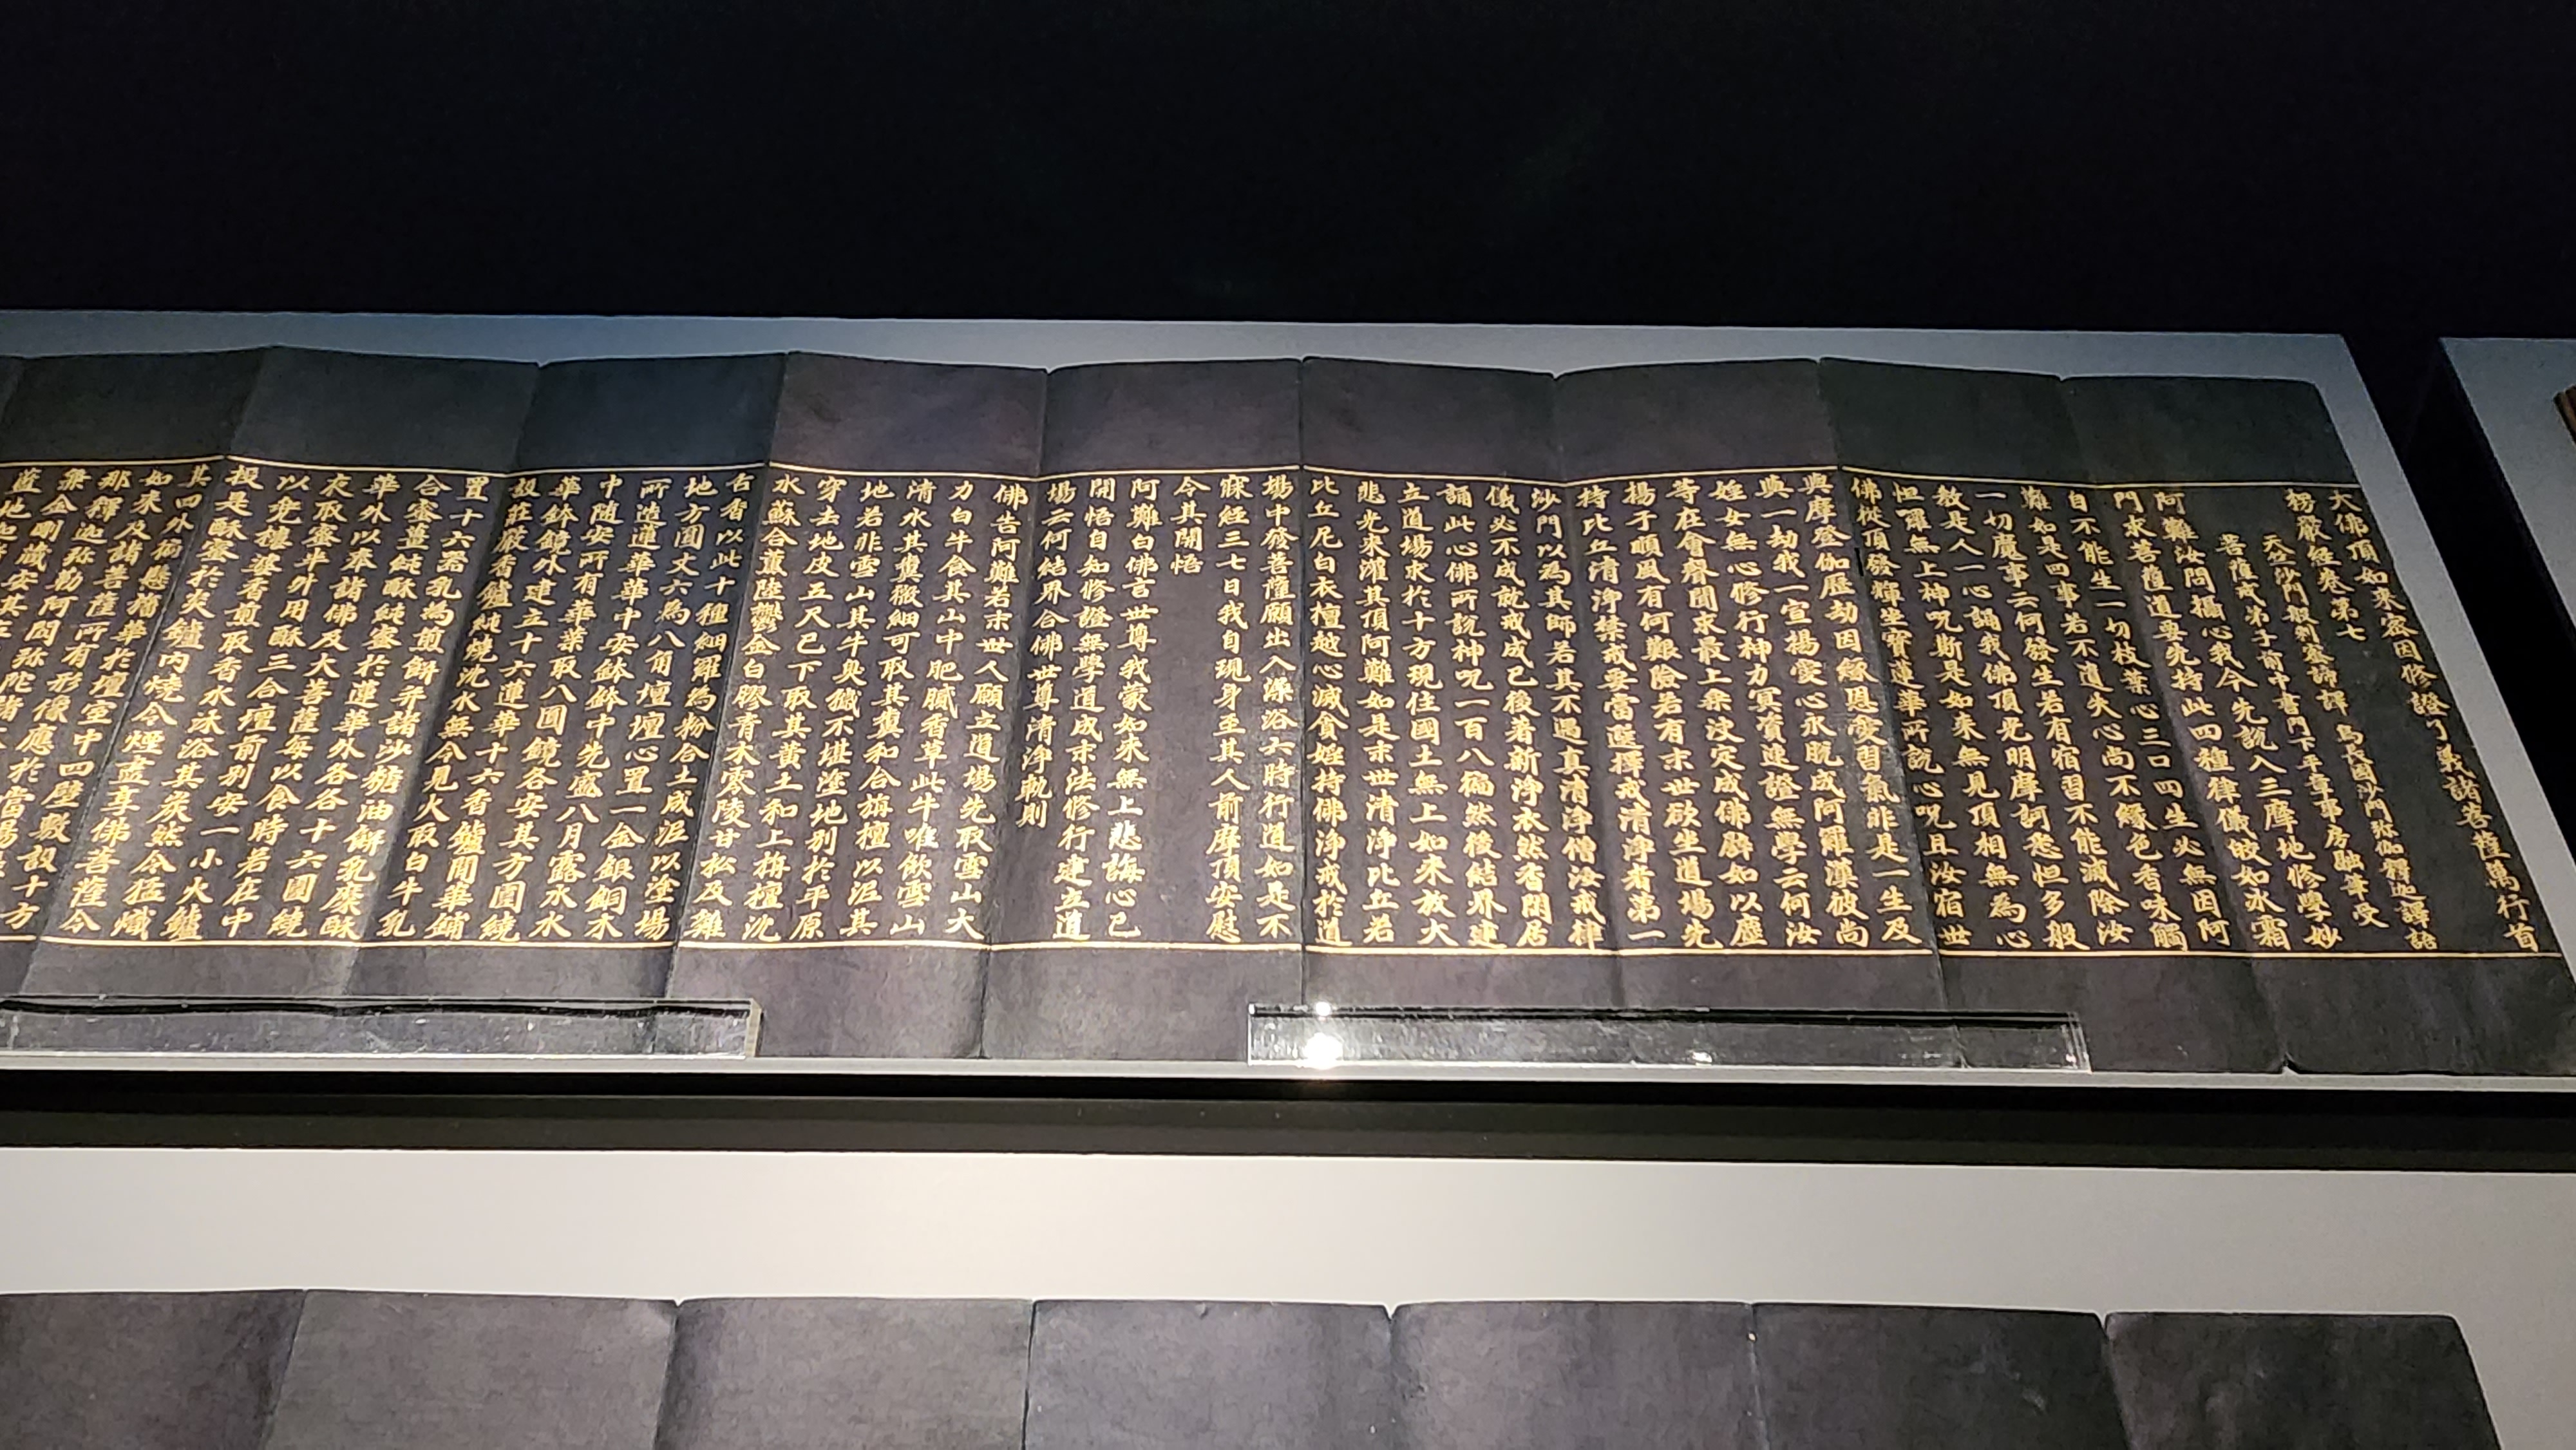 大佛頂如來密因修證了義諸菩薩萬行首
楞嚴經卷第七
天竺沙門般剌蜜諦譯 烏萇國沙門彌伽釋迦譯語
菩薩戒弟子前中書門下平章事房融筆受
阿難汝問攝心我今先說入三摩地修學妙
門求菩薩道要先持此四種律儀皎如冰霜
自不能生一切枝葉心三口四生必無因阿
難如是四事若不遺失心尚不緣色香味觸
一切魔事云何發生若有宿習不能滅除汝
教是人一心誦我佛頂光明摩訶悉怛多般
怛羅無上神呪斯是如來無見頂相無為心
佛從頂發輝坐寶蓮華所說心呪且汝宿世
與摩登伽歷劫因緣恩愛習氣非是一生及
與一劫我一宣揚愛心永脫成阿羅漢彼尚
婬女無心修行神力冥資速證無學云何汝
等在會聲聞求最上乘決定成佛譬如以塵
揚于順風有何艱險若有末世欲坐道場先
持比丘清淨禁戒要當選擇戒清淨者第一
沙門以為其師若其不遇真清淨僧汝戒律
儀必不成就戒成已後著新淨衣然香閑居
誦此心佛所說神呪一百八遍然後結界建
立道場求於十方現住國土無上如來放大
悲光來灌其頂阿難如是末世清淨比丘若
比丘尼白衣檀越心滅貪婬持佛淨戒於道
場中發菩薩願出入澡浴六時行道如是不
寐經三七日我自現身至其人前摩頂安慰
令其開悟
阿難白佛言世尊我蒙如來無上悲誨心已
開悟自知修證無學道成末法修行建立道
場云何結界合佛世尊清淨軌則
佛告阿難若末世人願立道場先取雪山大
力白牛食其山中肥膩香草此牛唯飲雪山
清水其糞微細可取其糞和合旃檀以泥其
地若非雪山其牛臭穢不堪塗地別於平原
穿去地皮五尺已下取其黃土和上旃檀沉
水蘇合薰陸鬱金白膠青木零陵甘松及雞
舌香以此十種細羅為粉合土成泥以塗場
地方圓丈六為八角壇壇心置一金銀銅木
所造蓮華華中安鉢鉢中先盛八月露水水
中隨安所有華葉取八圓鏡各安其方圍繞
華鉢鏡外建立十六蓮華十六香鑪間華鋪
設莊嚴香鑪純燒沉水無令見火取白牛乳
置十六器乳為煎餅并諸沙糖油餅乳糜酥
合蜜薑純酥純蜜於蓮華外各各十六圍繞
華外以奉諸佛及大菩薩每以食時若在中
夜取蜜半升用酥三合壇前別安一小火鑪
以兜樓婆香煎取香水沐浴其炭然令猛熾
投是酥蜜於炎鑪內燒令煙盡享佛菩薩令
其四外遍懸幡華於壇室中四壁敷設十方
如來及諸菩薩所有形像應於當陽
那釋迦彌勒阿閦彌陀諸
無金剛藏安其左
藍地迦